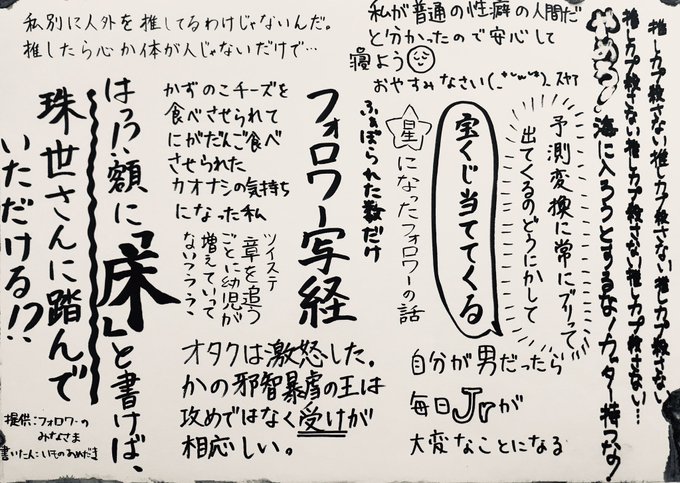 推しカプ殺さない推しカプ殺さない推しカプ殺さない
推しカプ殺さない推しカプ殺さない推しカプ殺さない…
やめろ!海に入ろうとするな!カッター持つな!
私が普通の性癖の人間だ
と分かったので安心して
寝よう
おやすみなさい
スヤァ
予測変換に常にブリって
出てくるのどうにかして
宝くじ当ててくる
自分が男だったら
毎日Jrが
大変なことになる
ふぁぼられた数だけ
星になったフォロワーの話
フォロワー写経
私別に人外を推してるわけじゃないんだ。
推したら心か体が人じゃないだけで…
かずのこチーズを
食べさせられて
にがだんご食べ
させられた
カオナシの気持ち
になった私
ツイステ
章を追う
ごとに幼児が
増えていって
ないつううう
オタクは激怒した。
かの邪智暴虐の王は
攻めではなく受けが
相応しい。
はっ!?額に「床」と書けば、
珠世さんに踏んで
いただける!?
提供:フォロワーの
みなさま
書いたん:いものあめだき